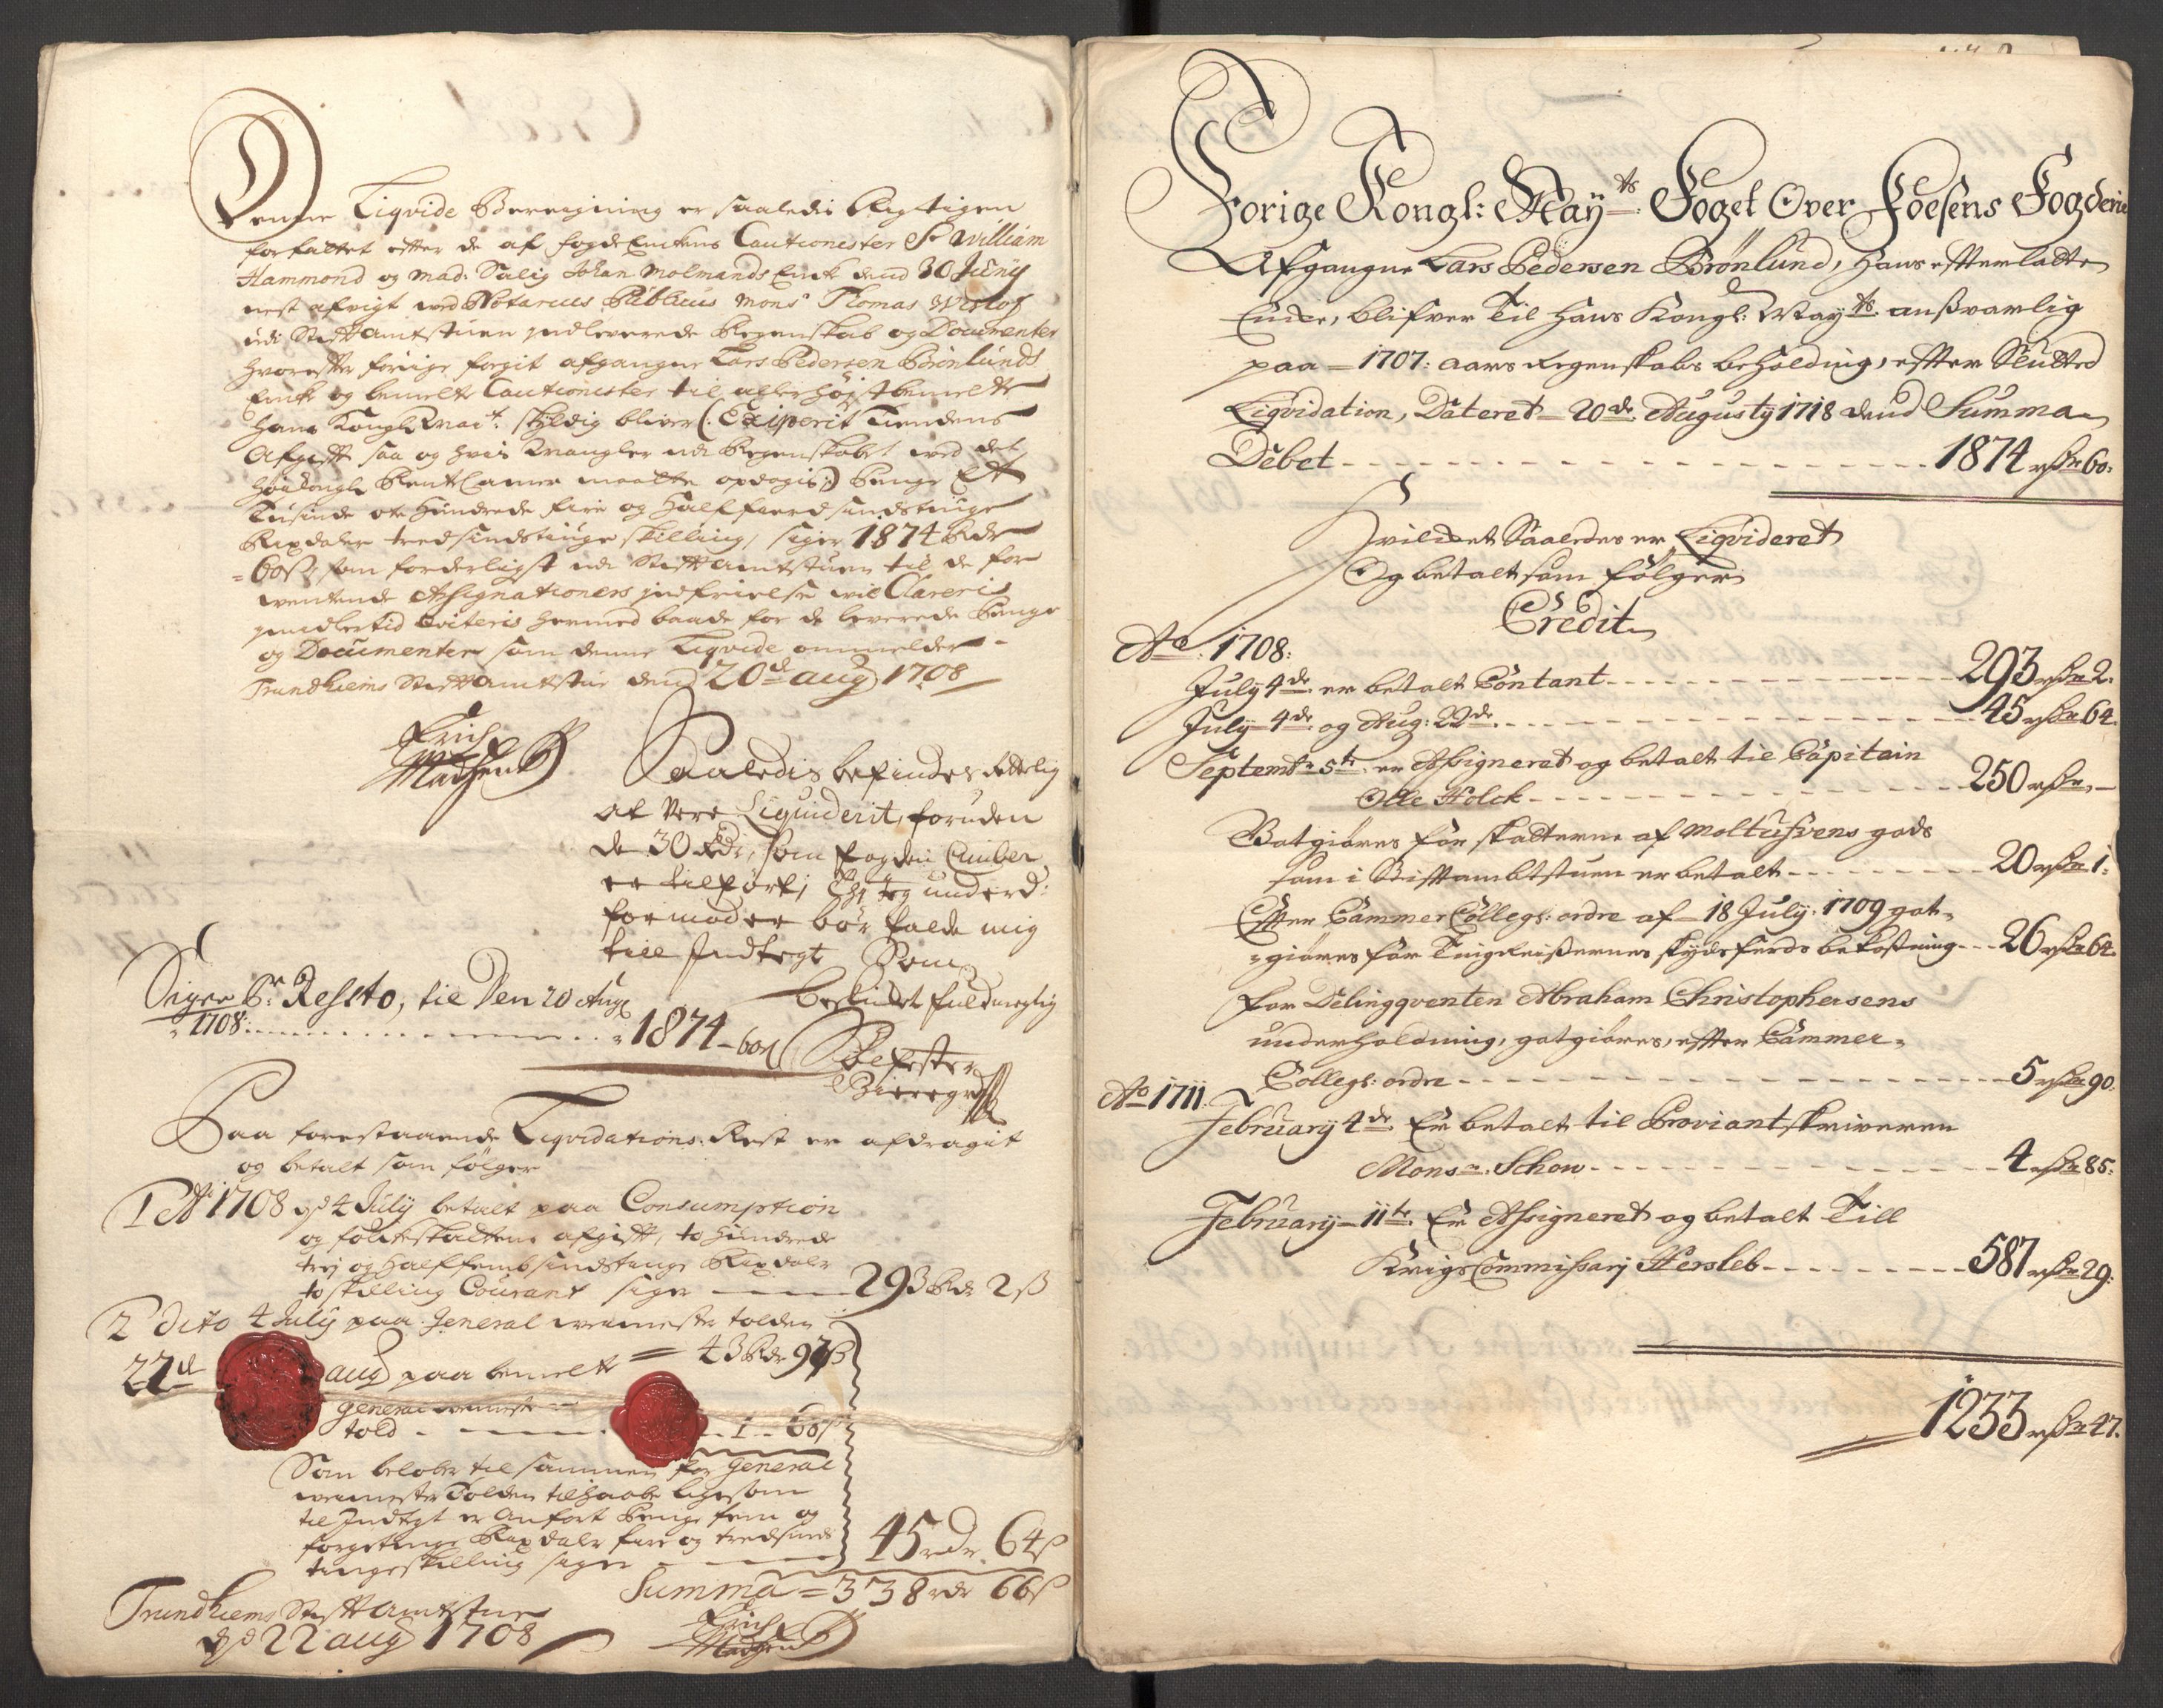 Denne Liqvide Beregning er saaledis Rigtigen
forfattet efter de af fogdEnckens Cautionister Sr William
Hammond og Mad: Salig Johan Molmands Encke dend 30 Junij
nest afvigt ved Notarius Publicus Mons: Thomas
udi StiftAmtstuen indleverede Regenskab og Documenter
hvorefter forige fogit afgangne Lars Pedersen Brønlunds
Encke og bemelte Cautionister til allerhøjstbemelte
hans Kongl: May:t skyldig bliver (: Exiperit Tiendens
Afgift saa og hvis Mangler udi Regenskabet ved det
høikongl: RentCamer maatte opdagis:) Penge Et
Tusinde otte Hundrede fire og halffierdsindstiuge
Rixdaler tredsindstiuge skilling, siger 1874 Rdr
60 s, som forderligst udi StiftAmtstuen til de for
ventende Assignationers indfrielse vil Clareris
imidlertid Qviteris hermed baade for de leverede Penge
og Documenter som denne Liqvide ommelder
Trundhiems StiftAmtstue dend 20de aug 1708
Erich
Madsen
Saaledis befindes Rettelig
at Vere Liquiderit, foruden
de 30 Rdr, som fogden
er tilført, Jeg underd:
formoder bør falde mig
till Indtegt Som
beskicket fuldmegtig
Siger Sr Resto, til Den 20 Aug
1708: 1874 - 60 s
Paa forestaaende Liqvidations Rest er afdragit
og betalt som følger
1 Ao 1708 d 4 July betalt paa Consumption
og folkeskattens afgift, to hundrede
trej og halffembsindstiuge Rixdaler
to skilling Courant siger 293 Rdr 2 s
2 Dito 4 July paa General tolden
43 Rdr
22d aug paa bemelte
General
told 1 - 66 s
Som beløber tilsammen for General
Tolden tilhaabe ligesom
til Indtgt er Anført Penge fem og
førgetiuge Rixdaler fire og tredsinds
tiugeskilling siger 45 rdr 64 s
Summa = 338 rdr 66 s
Trundhiems StiftAmtstue
d 22 aug 1708
Erich
Madsen
Forige Kongl: May:ts Foget Over Foesens Fogderie
Afgangne Lars Pedersen Brønlund, hans efterladte
Encke, blifver Til hans Kongl: May:ts ansvarlig
paa - 1707: aars Regenskabs beholding, efter Slutted
Liqvidation, Dateret 20de Augusty 1718 dend Summa
Debet 1874 rdr 60:
Hvilcket Saaledes er Liqvideret
Og betalt som følger
Credit
Ao: 1708:
July 4de er betalt Contant 293 rdr 2.
July 4de og Aug: 22de 45 rdr 64.
Septembr 5te er Assigneret og betalt til Capitain
Olle Holck 250 rdr -
Gotgiøres for skatterne af gods
som i Stiftambtstuen er betalt 20 rdr 1:
Efter Cammer Collegs: ordre af 18 July: 1709 got-
giøres for Tingreisernes skydsferds bekostning 26 rdr 64.
For Delinqventen Abraham Christophersens
underholdning, gotgiøres, efter Cammer
Collegs: ordre 5 rdr 90.
Ao 1711.
February 4de Er betalt til Proviantskriveren
Monsr: Schow 4 rdr 85:
February 11te Er Assigneret og betalt Till
KrigsCommissarj Hersleb 587 rdr 29:
1233 rdr 47.